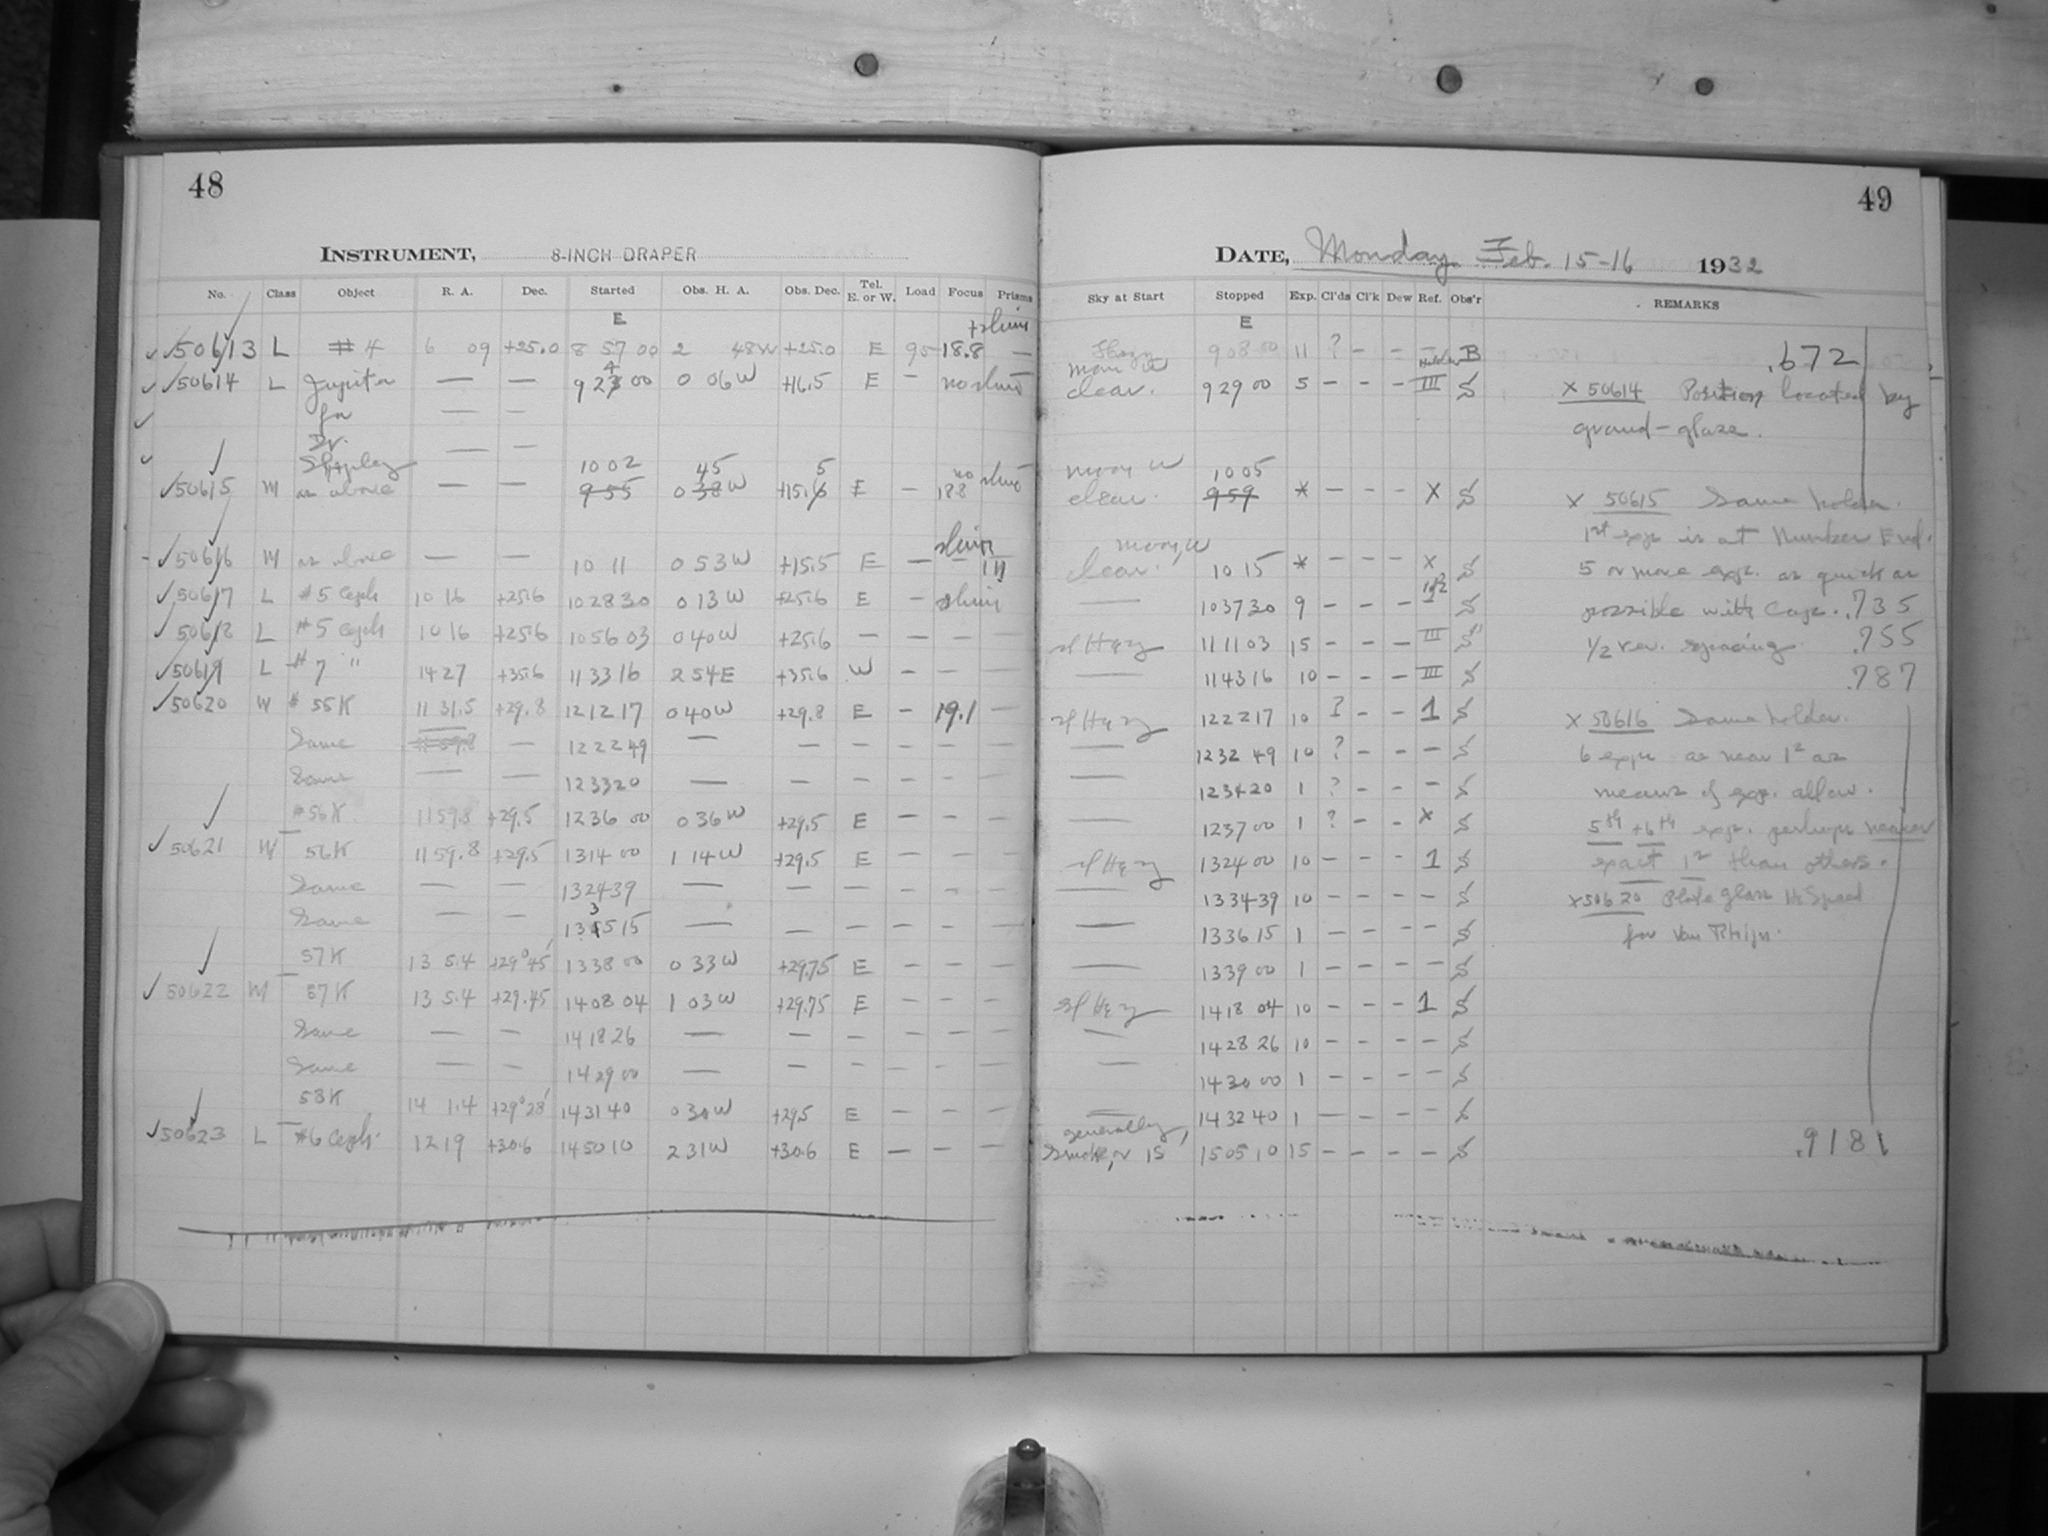 48
INSTRUMENT, 8-INCH DRAPER
No. Class Object R. A. Dec. Started Obs. H. A. Obs. Dec. Tel. E. or W. Load Focus Prisms
E
50613 L # 4 6 09 +25.0 8 57 00 2 48W +25.0 E 95 18.8 —
50614 L Jupiter — — 9 24 00 0 06 W +16.5 E -
for — —
Dr. — —
Shapley
10 02 45 5 no
50615 M as above — — 9 55 0 38 W +15.6 E — 18.8
50616 M as above — — 10 11 0 53 W +15.5 E — — III
50617 L #5 Ceph 10 16 +25.6 10 28 30 0 13 W +25.6 E —
50618 L #5 Ceph 10 16 +25.6 10 56 03 0 40 W +25.6 — — — —
50619 L # 7 " 14 27 +35.6 11 33 16 2 54 E +35.6 W — — —
50620 W # 55K 11 31.5 +29.8 12 12 17 0 40 W +29.8 E — 19.1 —
Same — 12 22 49 — — — — — —
Same — — 12 33 20 — — — — — —
#56K 11 59.8 +29.5 12 36 00 0 36 W +29.5 E — — —
50621 W 56K 11 59.8 +29.5 13 14 00 1 14 W +29.5 E — — —
Same — — 13 24 39 — — — — — —
Same — — 13 35 15 — — — — — —
57K 13 5.4 +29°45' 13 38 00 0 33 W +29.75 E — — —
50622 M 57K 13 5.4 +29.45 14 08 04 1 03 W +29.75 E — — —
Same — — 14 18 26 — — — — — —
Same — — 14 29 00 — — — — — —
58K 14 1.4 +29°28' 14 31 40 0 30 W +29.5 E — — —
50623 L #6 Ceph. 12 19 +30.6 14 50 10 2 31 W +30.6 E — — —
49
DATE, Monday Feb. 15-16 1932
Sky at Start Stopped Exp. Cl'ds Cl'k Dew Ref. Obs'r REMARKS
E
9 08 00 11 ? — — — B .672
Moon W Holder
clear. 9 29 00 5 — — — III S x 50614 Position located by
ground-glass.
Moon W 10 05
clear. 9 59 * — — — X S x 50615 Same holder.
1st exp. is at Number End.
Moon, W
clear. 10 15 * — — — X S 5 or more exp. as quick as
— 10 37 30 9 — — — S possible with Cap. .735
sl Hazy 11 11 03 15 — — — III S 1/2 rev. spacing. .755
— 11 43 16 10 — — — III S .787
sl Hazy 12 22 17 10 ? — — 1 S x 50616 Same holder.
— 12 32 49 10 ? — — — S 6 exps as near 1s as
— 12 34 20 1 ? — — — S means of exp. allow.
— 12 37 00 1 ? — — X S 5th + 6th exp. perhaps nearer
sl Hazy 13 24 00 10 — — — 1 S exact 1s than others.
— 13 34 39 10 — — — — S x 50620 Plate glass Hi Speed
— 13 36 15 1 — — — — S for Van Rhijn.
— 13 39 00 1 — — — — S
sl Hazy 14 18 04 10 — — — 1 S
— 14 28 26 10 — — — — S
— 14 30 00 1 — — — — S
— 14 32 40 1 — — — — S
generally,
15 15 05 10 15 — — — — S .918